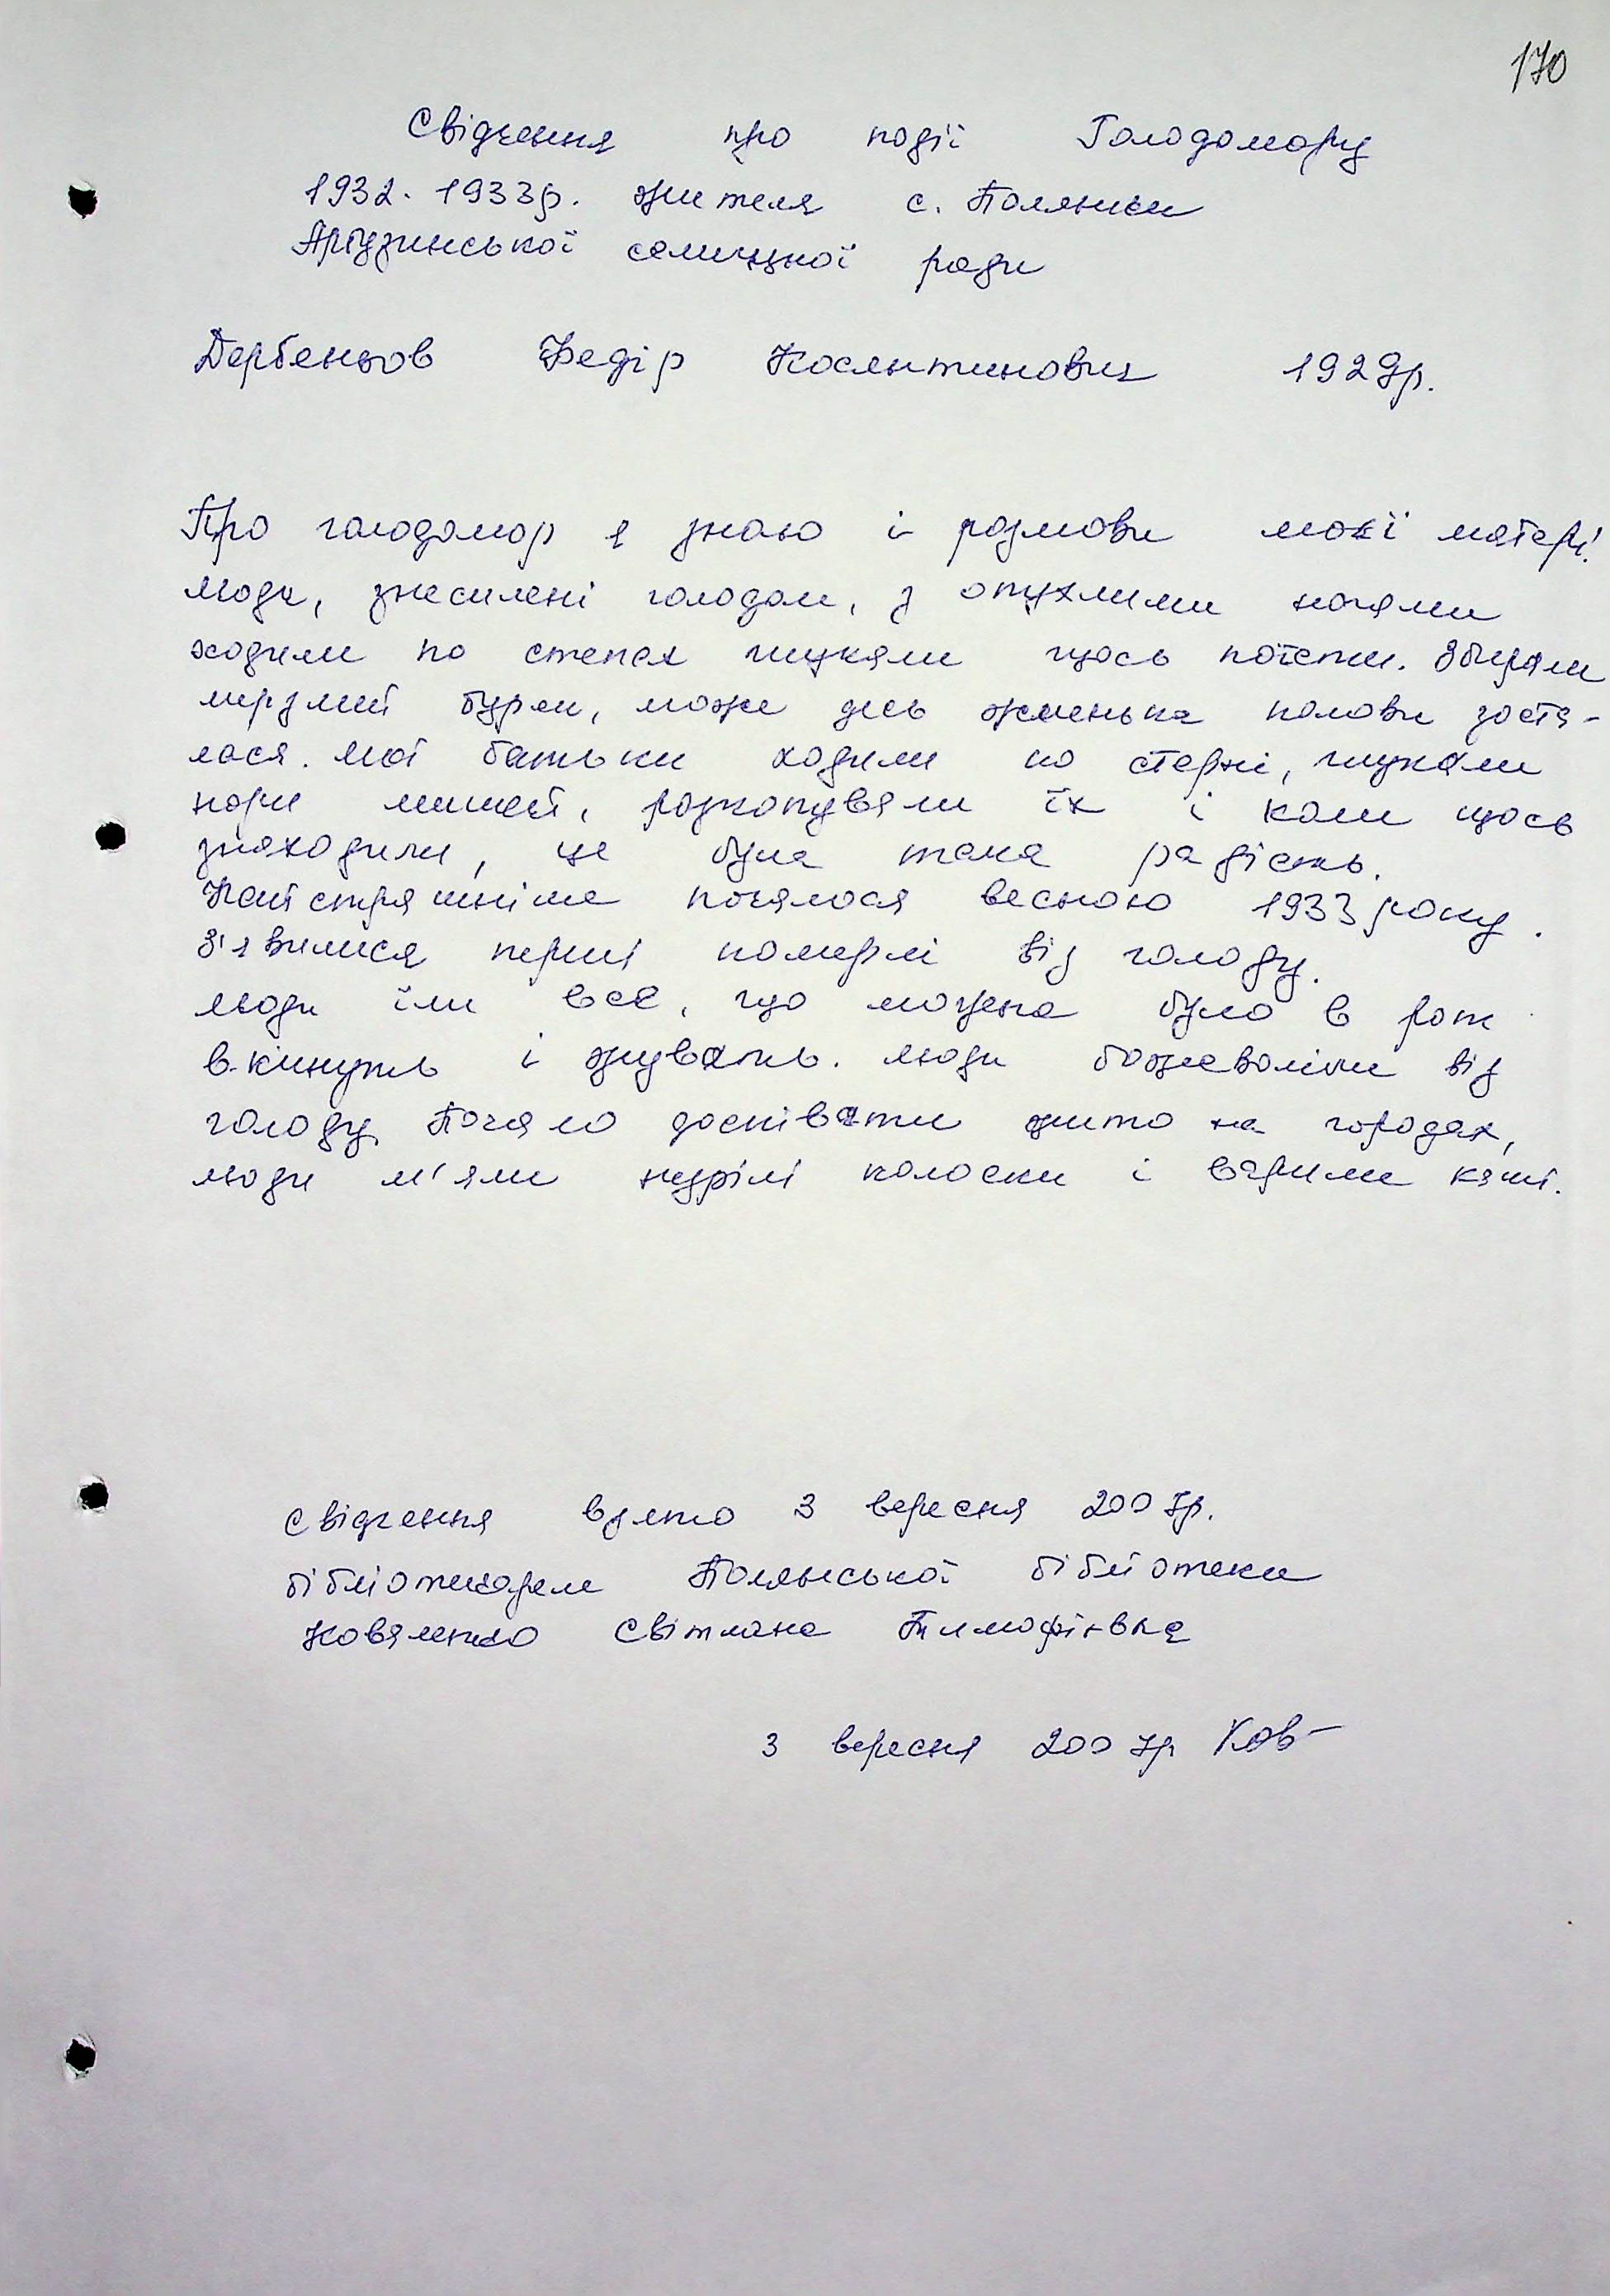 170
Свідчення про події Голодомору
1932-1933р. жителя с. Поляники
Аргузинської селищної ради
Дербеньов Федір Косянтинович 1929р.
Про голодомор я знаю і розмови моєї матері.
Люди, знесилені голодом, з опухлими ногами
ходили по степах шукали щось поїсти. Збирали
мерзлий буряк, може десь жменька полови зоста-
лася. Мої батьки ходили по стерні, шукали
нори мишей, розкопували їх і коли щось
знаходили, це була така радість.
Найстрашніше почалося весною 1933 року.
З'явилися перші померлі від голоду.
Люди їли все, що можна було в рот
вкинуть і жувать. Люди божеволіли від
голоду. Почало доспівати жито на городах,
люди м'яли недрілі колоски і варили каші.
Свідчення взято 3 вересня 2007р.
бібліотекарем Полянської бібліотеки
Коваленко Світлана Тимофіївна
3 вересня 2007р Ков-